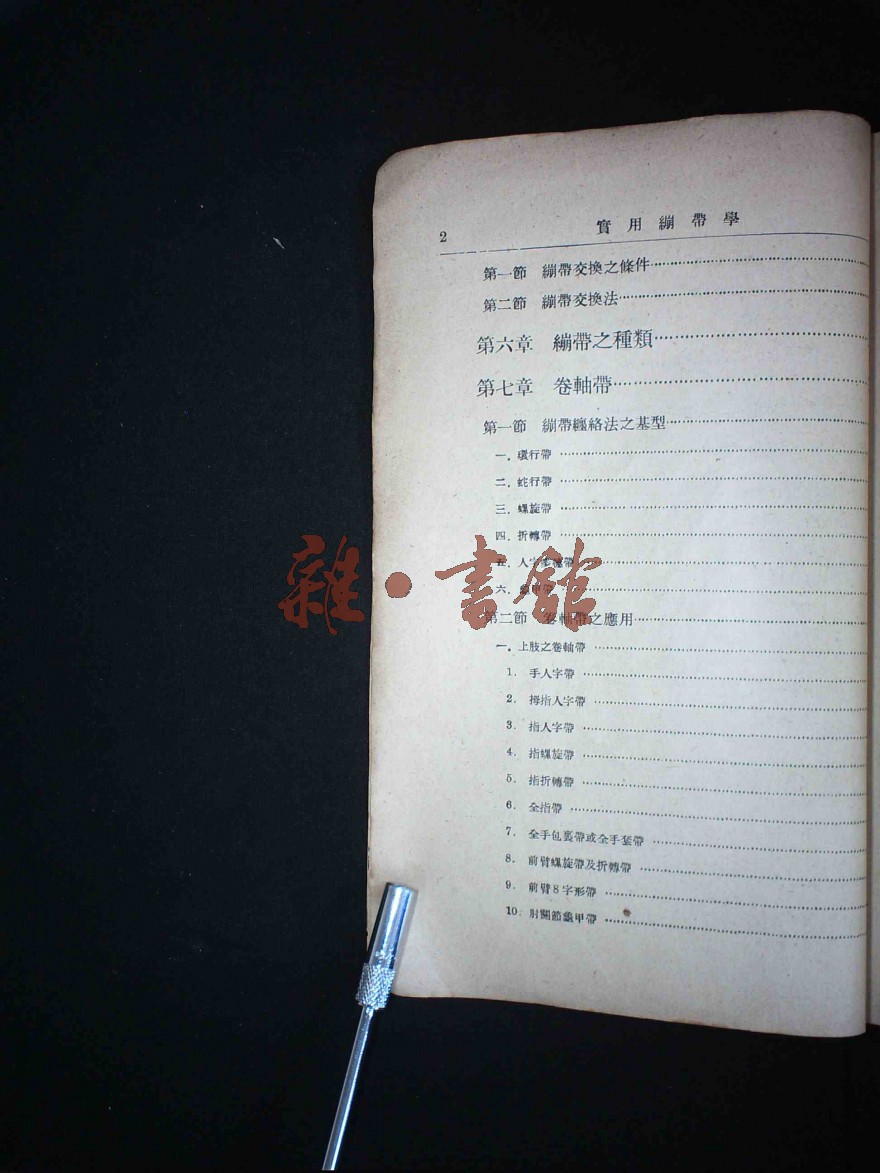 2 實用繃帶學
第一節 繃帶交換之條件
第二節 繃帶交換法
第六章 繃帶之種類
第七章 卷軸帶
第一節 繃帶纏絡法之基型
一. 環行帶
二. 蛇行帶
三. 螺旋帶
四. 折轉帶
五. 人字帶
六. 龜甲帶
第二節 卷軸帶之應用
一. 上肢之卷軸帶
1. 手人字帶
2. 拇指人字帶
3. 指人字帶
4. 指螺旋帶
5. 指折轉帶
6. 全指帶
7. 全手包裹帶或全手套帶
8. 前臂螺旋帶及折轉帶
9. 前臂8字形帶
10. 肘關節龜甲帶
雜·書館